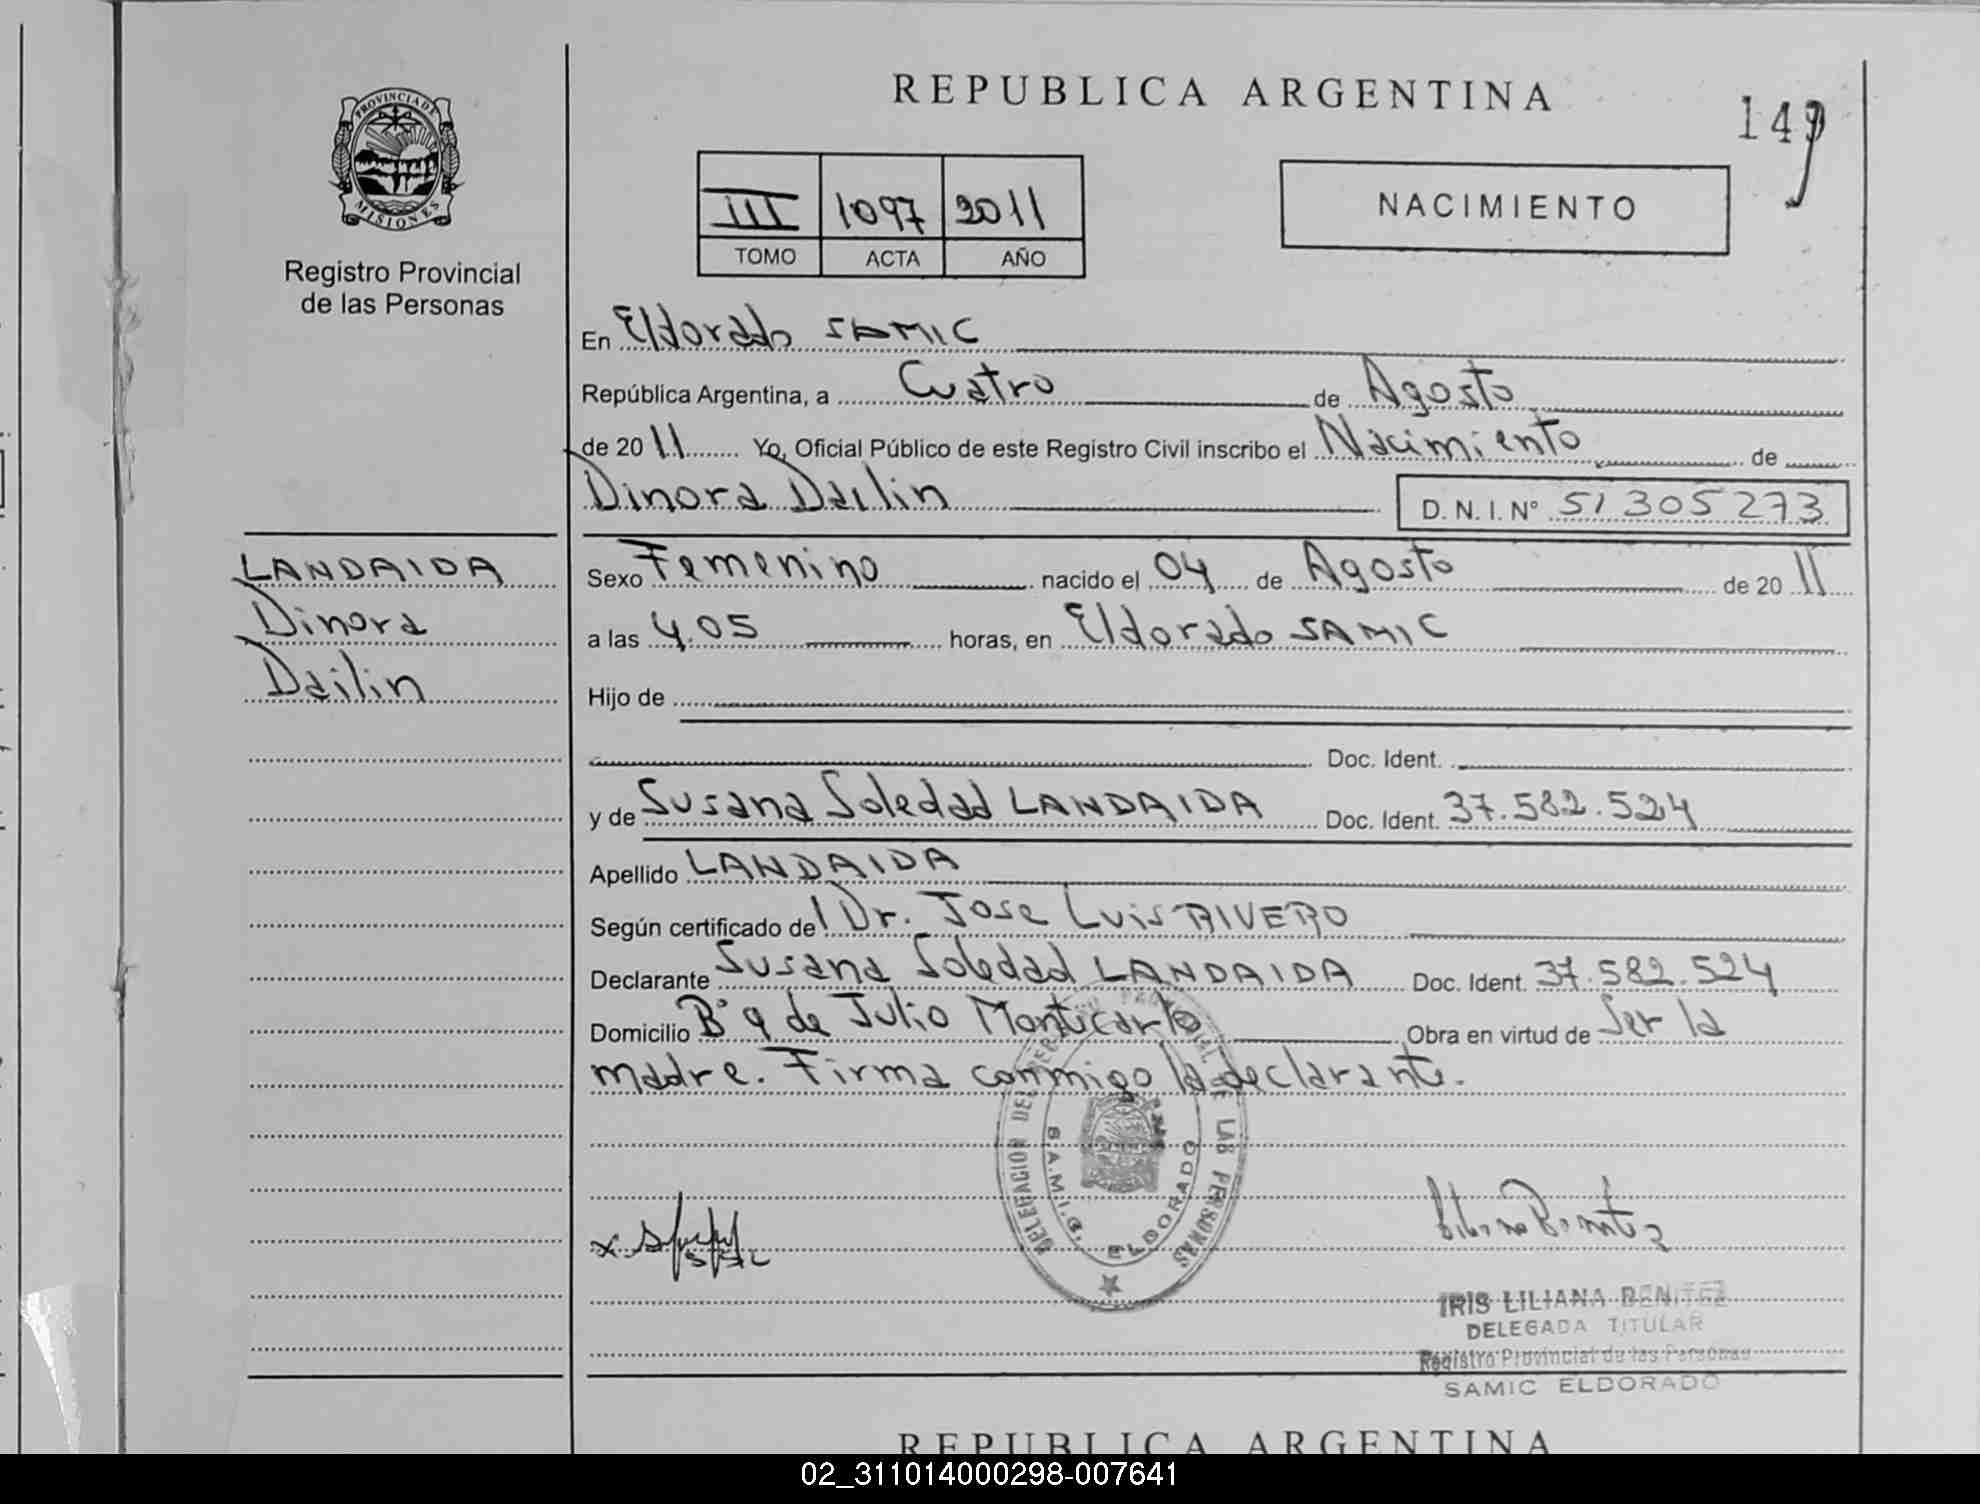 REPUBLICA ARGENTINA
149
PROVINCIA DE
MISIONES
Registro Provincial
de las Personas
III 1097 2011
TOMO ACTA AÑO
NACIMIENTO
En Eldorado SAMIC
República Argentina, a Cuatro de Agosto
de 2011 Yo, Oficial Público de este Registro Civil inscribo el Nacimiento de
Dinora Dailin D.N.I. Nº 51305273
LANDAIDA
Dinora
Dailin
Sexo Femenino nacido el 04 de Agosto de 2011
a las 4.05 horas, en Eldorado SAMIC
Hijo de
Doc. Ident.
y de Susana Soledad LANDAIDA Doc. Ident. 37.582.524
Apellido LANDAIDA
Según certificado del Dr. Jose Luis RIVERO
Declarante Susana Soledad LANDAIDA Doc. Ident. 37.582.524
Domicilio Bº 9 de Julio Montecarlo Obra en virtud de Ser la
madre. Firma conmigo la declarante.
DELEGACION DEL REGISTRO PROVINCIAL DE LAS PERSONAS
S.A.M.I.C. ELDORADO
IRIS LILIANA BENITEZ
DELEGADA TITULAR
Registro Provincial de las Personas
SAMIC ELDORADO
REPUBLICA ARGENTINA
02_311014000298-007641